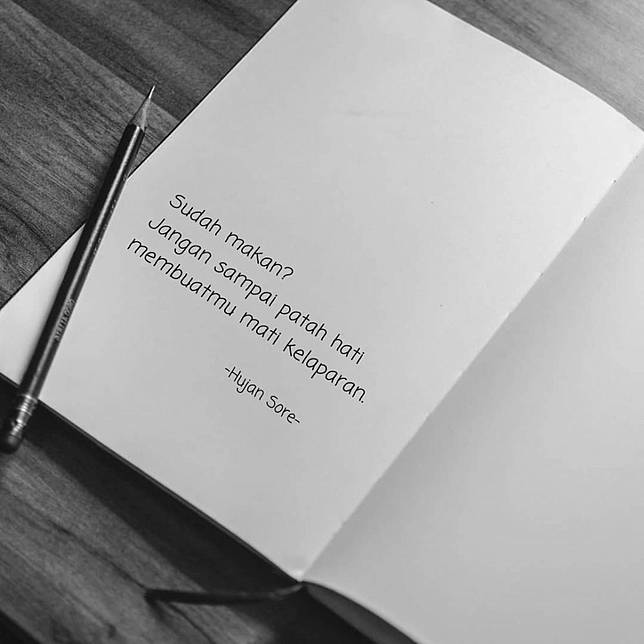 Sudah makan?
Jangan sampai patah hati
membuatmu mati kelaparan.
-Hujan Sore-